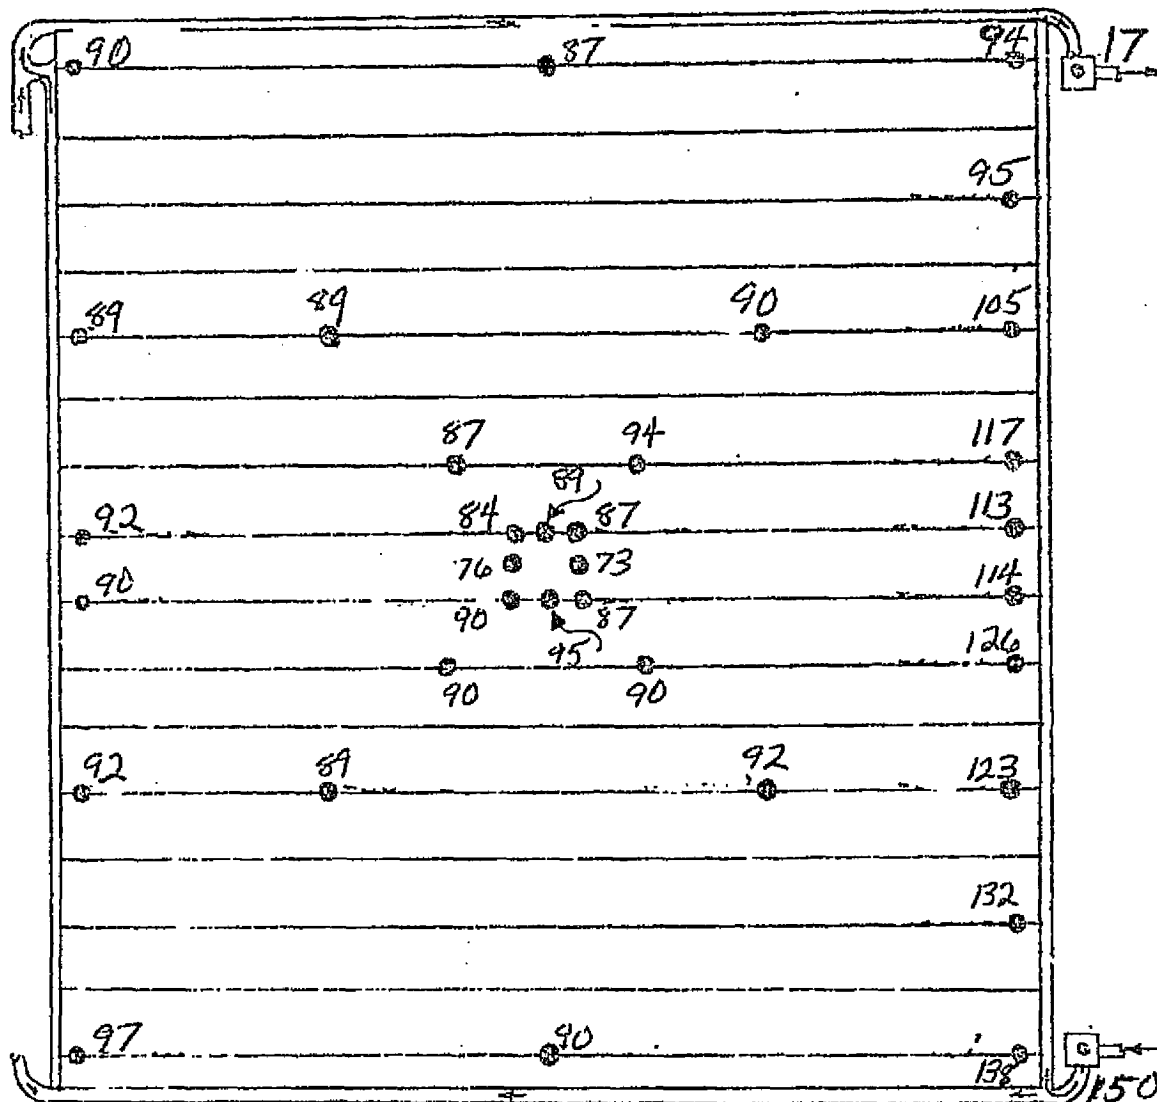 90 87 94 17
95
89 89 90 105
87 94 117
89
92 84 87 113
76 73
90 114
90 87
95 126
90 90
92 89 92 123
132
97 90
138 150